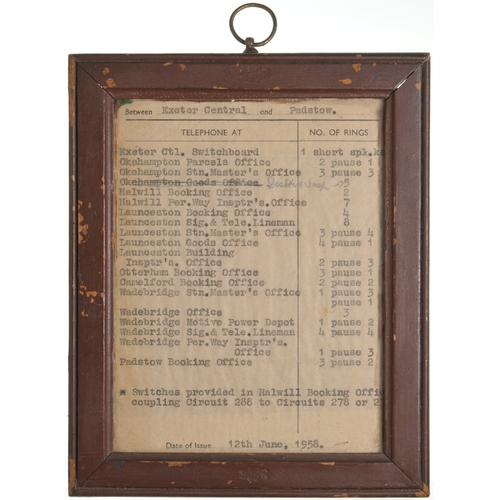 Between Exeter Central and Padstow.
TELEPHONE AT NO. OF RINGS
Exeter Ctl. Switchboard 1 short spk.ke
Okehampton Parcels Office 2 pause 1
Okehampton Stn.Master's Office 3 pause 3
Okehampton Goods Office 5
Halwill Booking Office 2
Halwill Per.Way Insptr's.Office 7
Launceston Booking Office 4
Launceston Sig.& Tele.Lineman 6
Launceston Stn.Master's Office 3 pause 4
Launceston Goods Office 4 pause 1
Launceston Building
Insptr's. Office 2 pause 3
Otterham Booking Office 3 pause 1
Camelford Booking Office 2 pause 2
Wadebridge Stn.Master's Office 1 pause 3
pause 1
Wadebridge Office 3
Wadebridge Motive Power Depot 1 pause 2
Wadebridge Sig.& Tele.Lineman 4 pause 4
Wadebridge Per.Way Insptr's.
Office 1 pause 3
Padstow Booking Office 3 pause 2
* Switches provided in Halwill Booking Offic
coupling Circuit 288 to Circuits 278 or 2
Date of Issue 12th June, 1958.